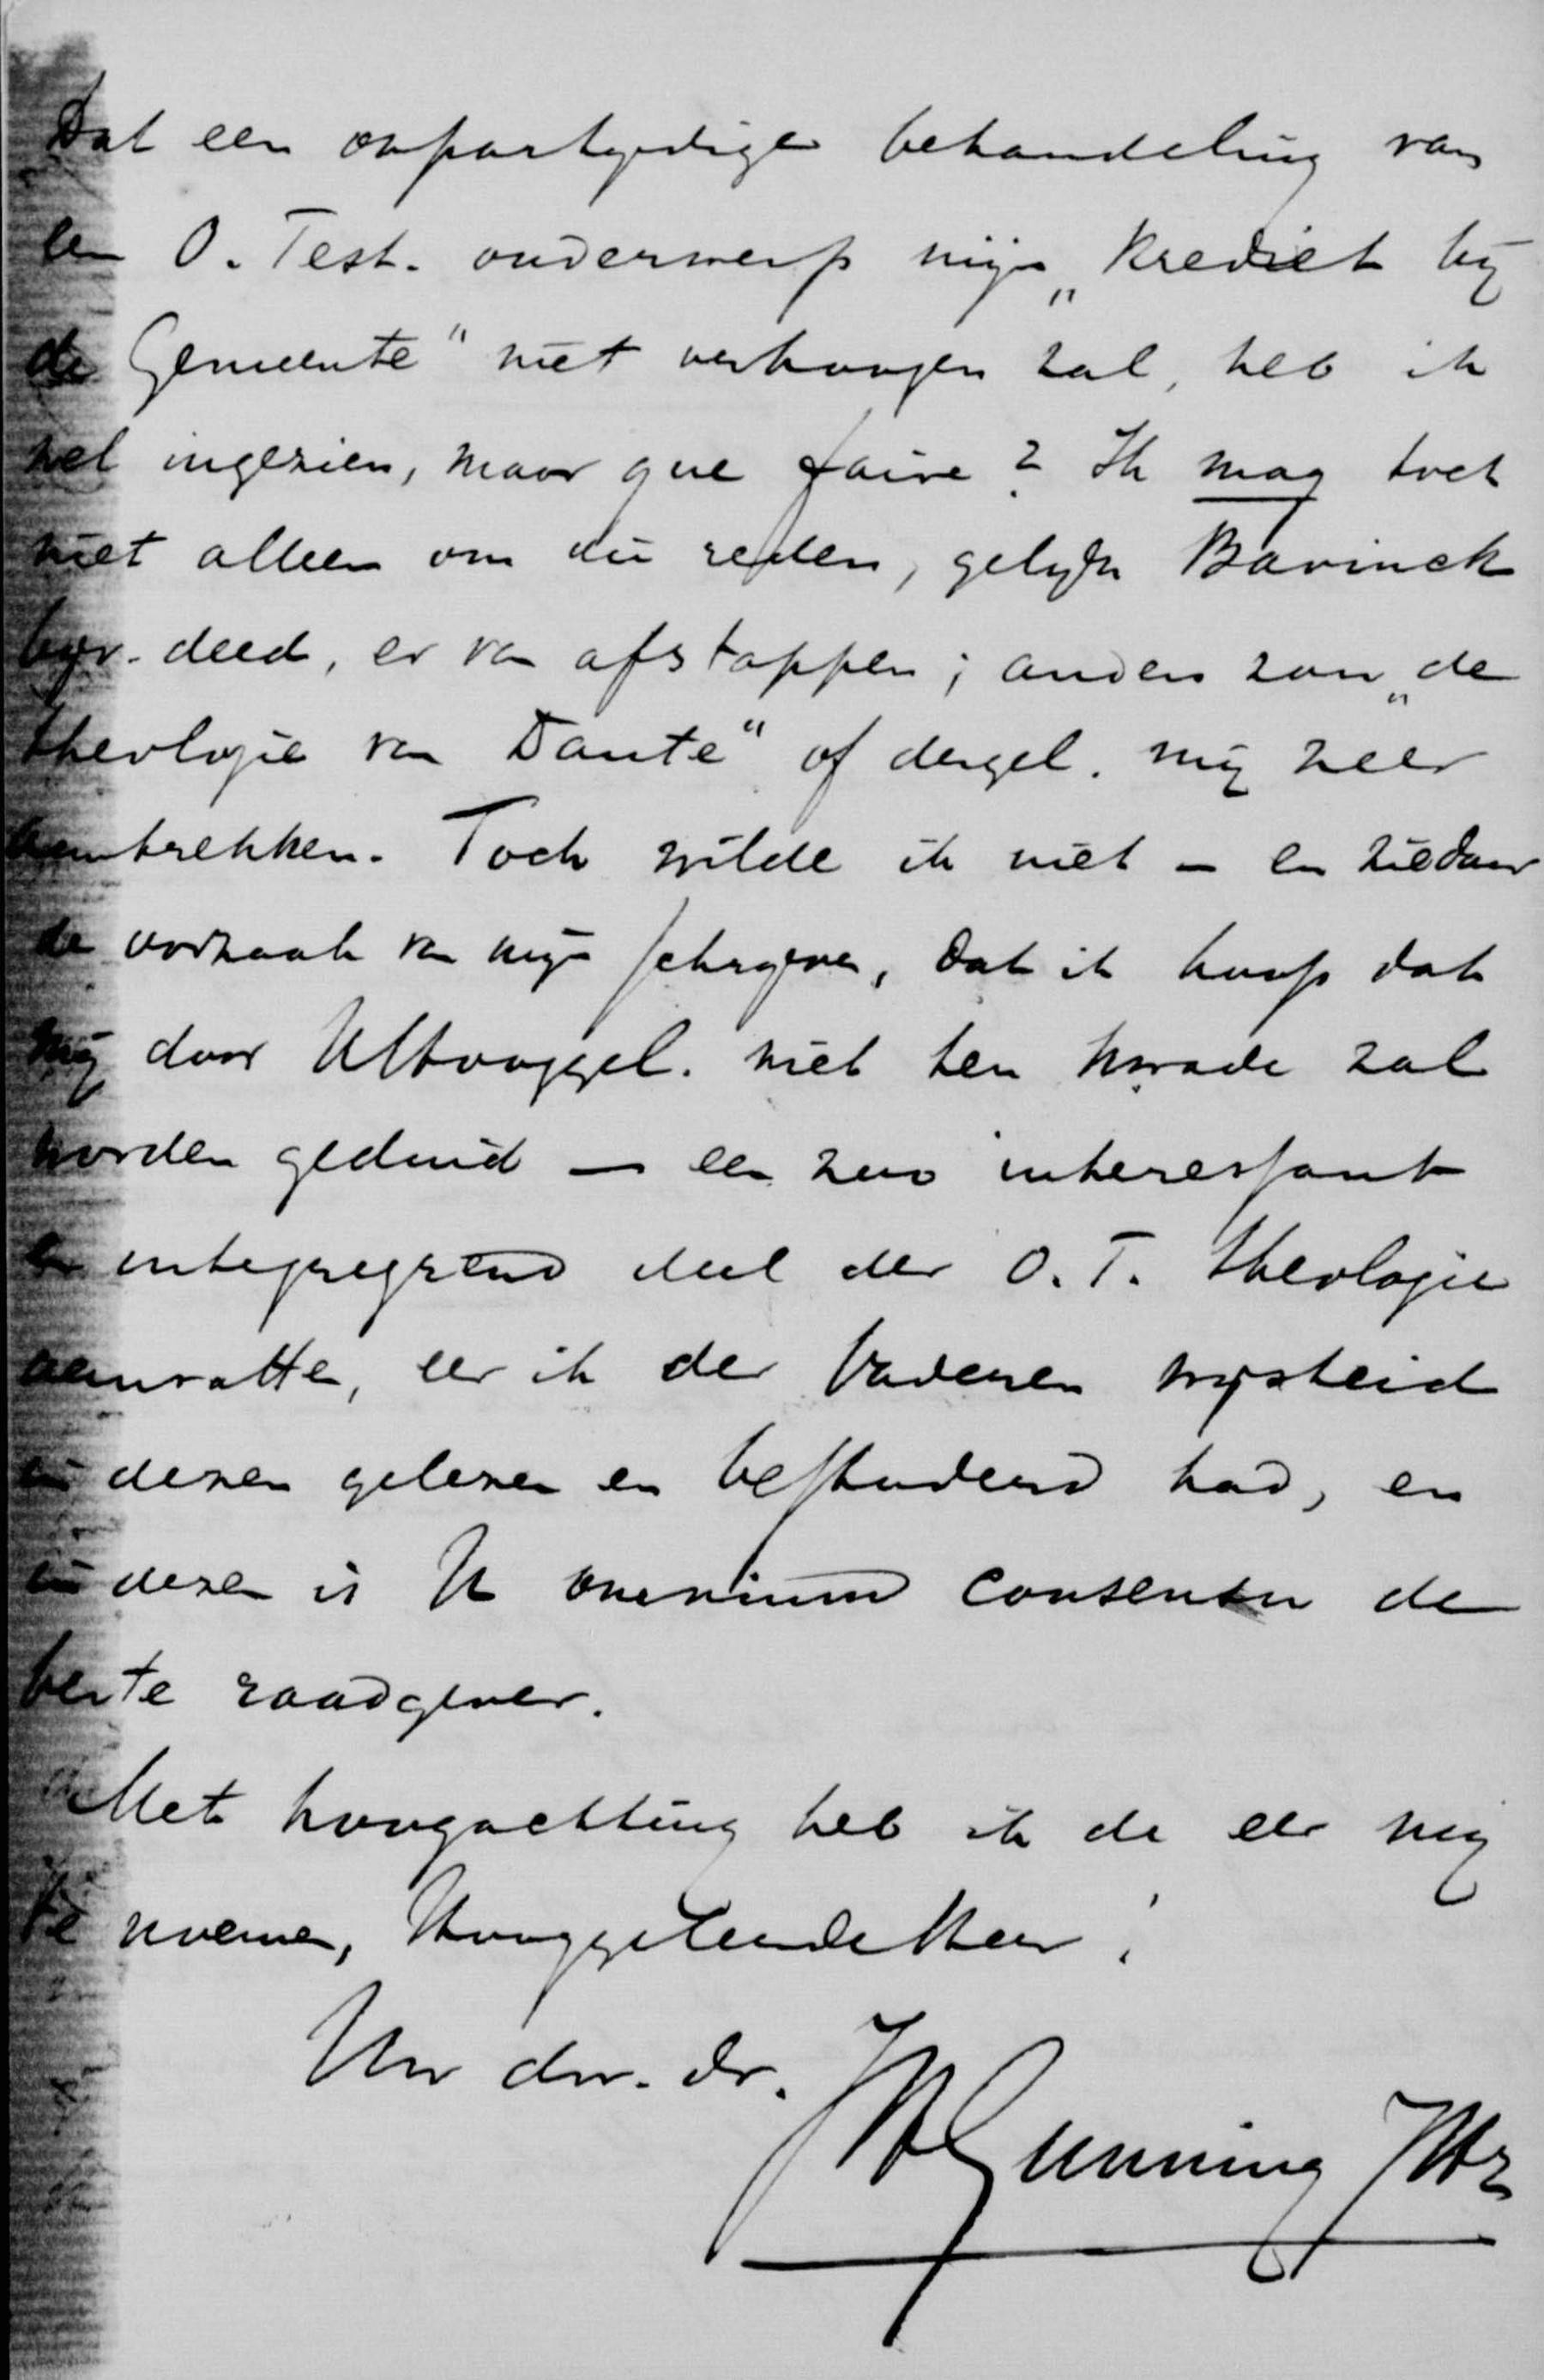 Dat een onpartydige behandeling van
een O. Test. onderwerp mijn „krediet bij
de Gemeente" niet verhoogen zal, heb ik
wel ingezien, maar que faire? Ik mag toch
niet alleen om die reden, gelijk Bavinck
byv. deed, er van afstappen; anders zou „de
theologie van Dante" of dergel. mij zeer
aantrekken. Toch wilde ik niet – en ziedaar
de oorzaak van mijn schrijven, dat ik hoop dat
mij door UHooggel. niet ten kwade zal
worden geduid – een zoo interessant
en integreerend deel der O. T. theologie
aanvatte, eer ik der Vaderen wijsheid
in dezen gelezen en bestudeerd had, en
in dezen is U omnium consensu de
beste raadgever.
Met hoogachting heb ik de eer mij
te noemen, Hooggeleerde Heer!
Uw dw. dr. JHGunning JHz